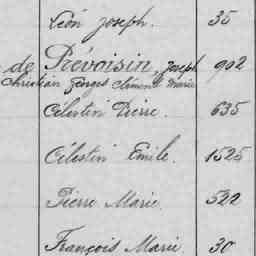 Léon Joseph. 35
de Prévoisin, Joseph 902
Christian Georges Clément Marie
Célestin Pierre. 635
Célestin Emile. 1525
Pierre Marie. 522
François Marie. 30